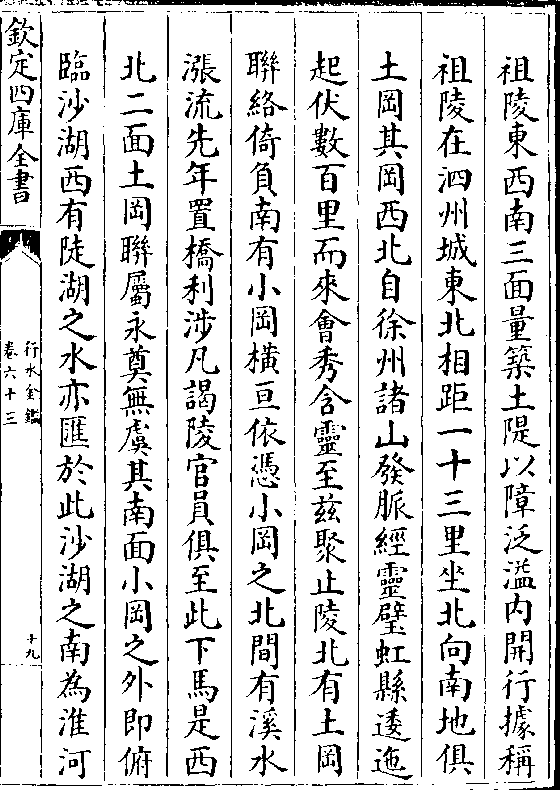 祖陵東西南三面量築土隄以障泛溢内開行據稱
祖陵在泗州城東北相距一十三里坐北向南地俱
土岡其岡西北自徐州諸山發脈經靈璧虹縣逶迤
起伏數百里而來㑹秀含靈至兹聚止陵北有土岡
聯絡倚負南有小岡横亘依憑小岡之北間有溪水
漲流先年置橋利涉凡謁陵官員俱至此下馬是西
北二面土岡聯屬永奠無虞其南面小岡之外即俯
臨沙湖西有陡湖之水亦匯於此沙湖之南為淮河
欽定四庫全書
行水金鑑
卷六十三
十九